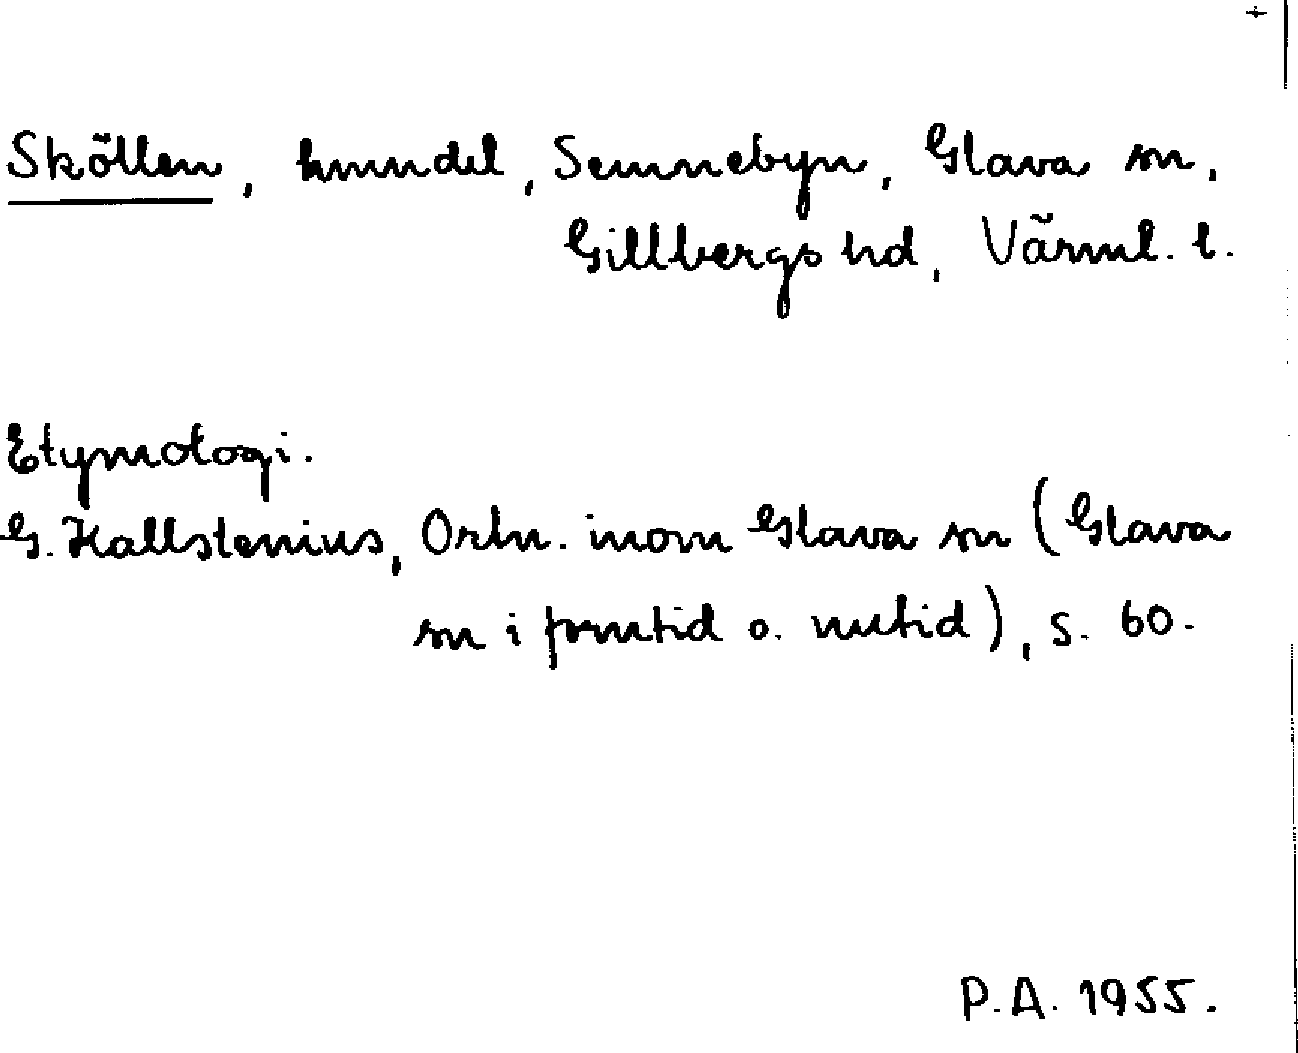 +
Sköllen, hmndel, Sennebyn, Glava sn,
Gillbergs hd, Värml. l.
Etymologi.
G. Kallstenius, Ortn. inom Glava sn (Glava
sn i forntid o. nutid), s. 60.
P.A. 1955.